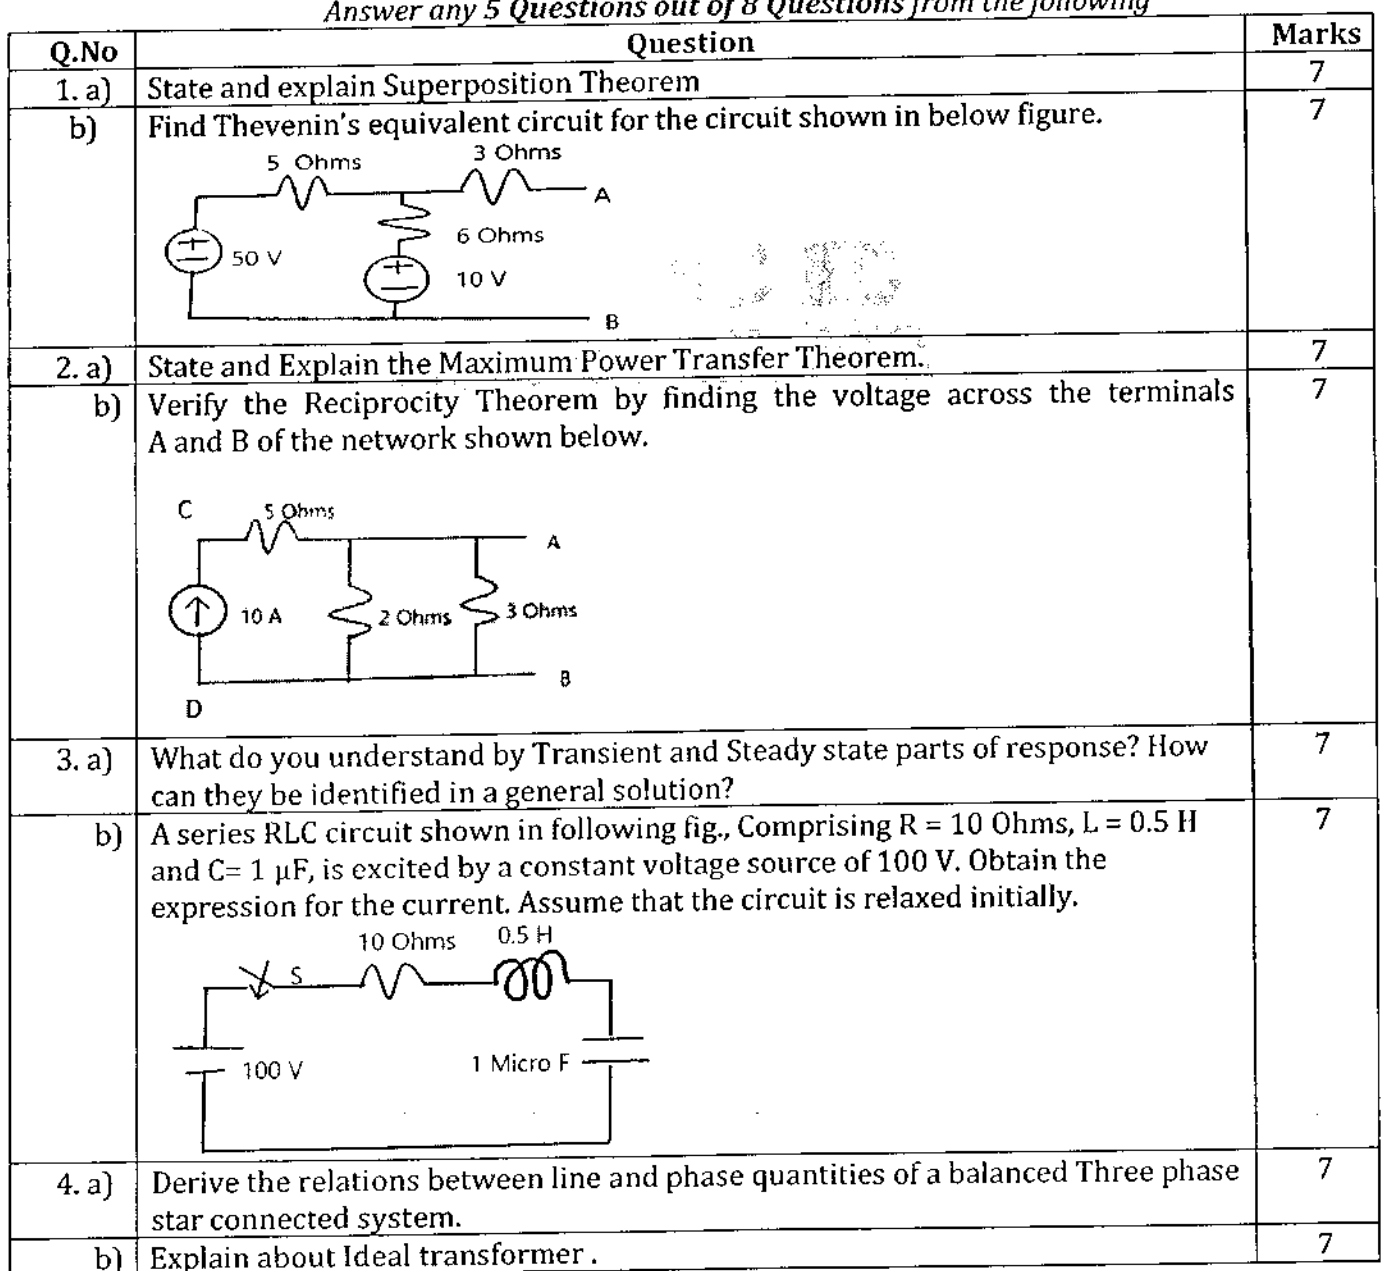 Answer any 5 Questions out of 8 Questions from the following
Q.No Question Marks
1. a) State and explain Superposition Theorem 7
b) Find Thevenin's equivalent circuit for the circuit shown in below figure. 7
5 Ohms 3 Ohms
A
6 Ohms
50 V
10 V
B
2. a) State and Explain the Maximum Power Transfer Theorem. 7
b) Verify the Reciprocity Theorem by finding the voltage across the terminals 7
A and B of the network shown below.
C 5 Ohms
A
10 A 2 Ohms 3 Ohms
B
D
3. a) What do you understand by Transient and Steady state parts of response? How 7
can they be identified in a general solution?
b) A series RLC circuit shown in following fig., Comprising R = 10 Ohms, L = 0.5 H 7
and C= 1 µF, is excited by a constant voltage source of 100 V. Obtain the
expression for the current. Assume that the circuit is relaxed initially.
10 Ohms 0.5 H
S
100 V 1 Micro F
4. a) Derive the relations between line and phase quantities of a balanced Three phase 7
star connected system.
b) Explain about Ideal transformer . 7